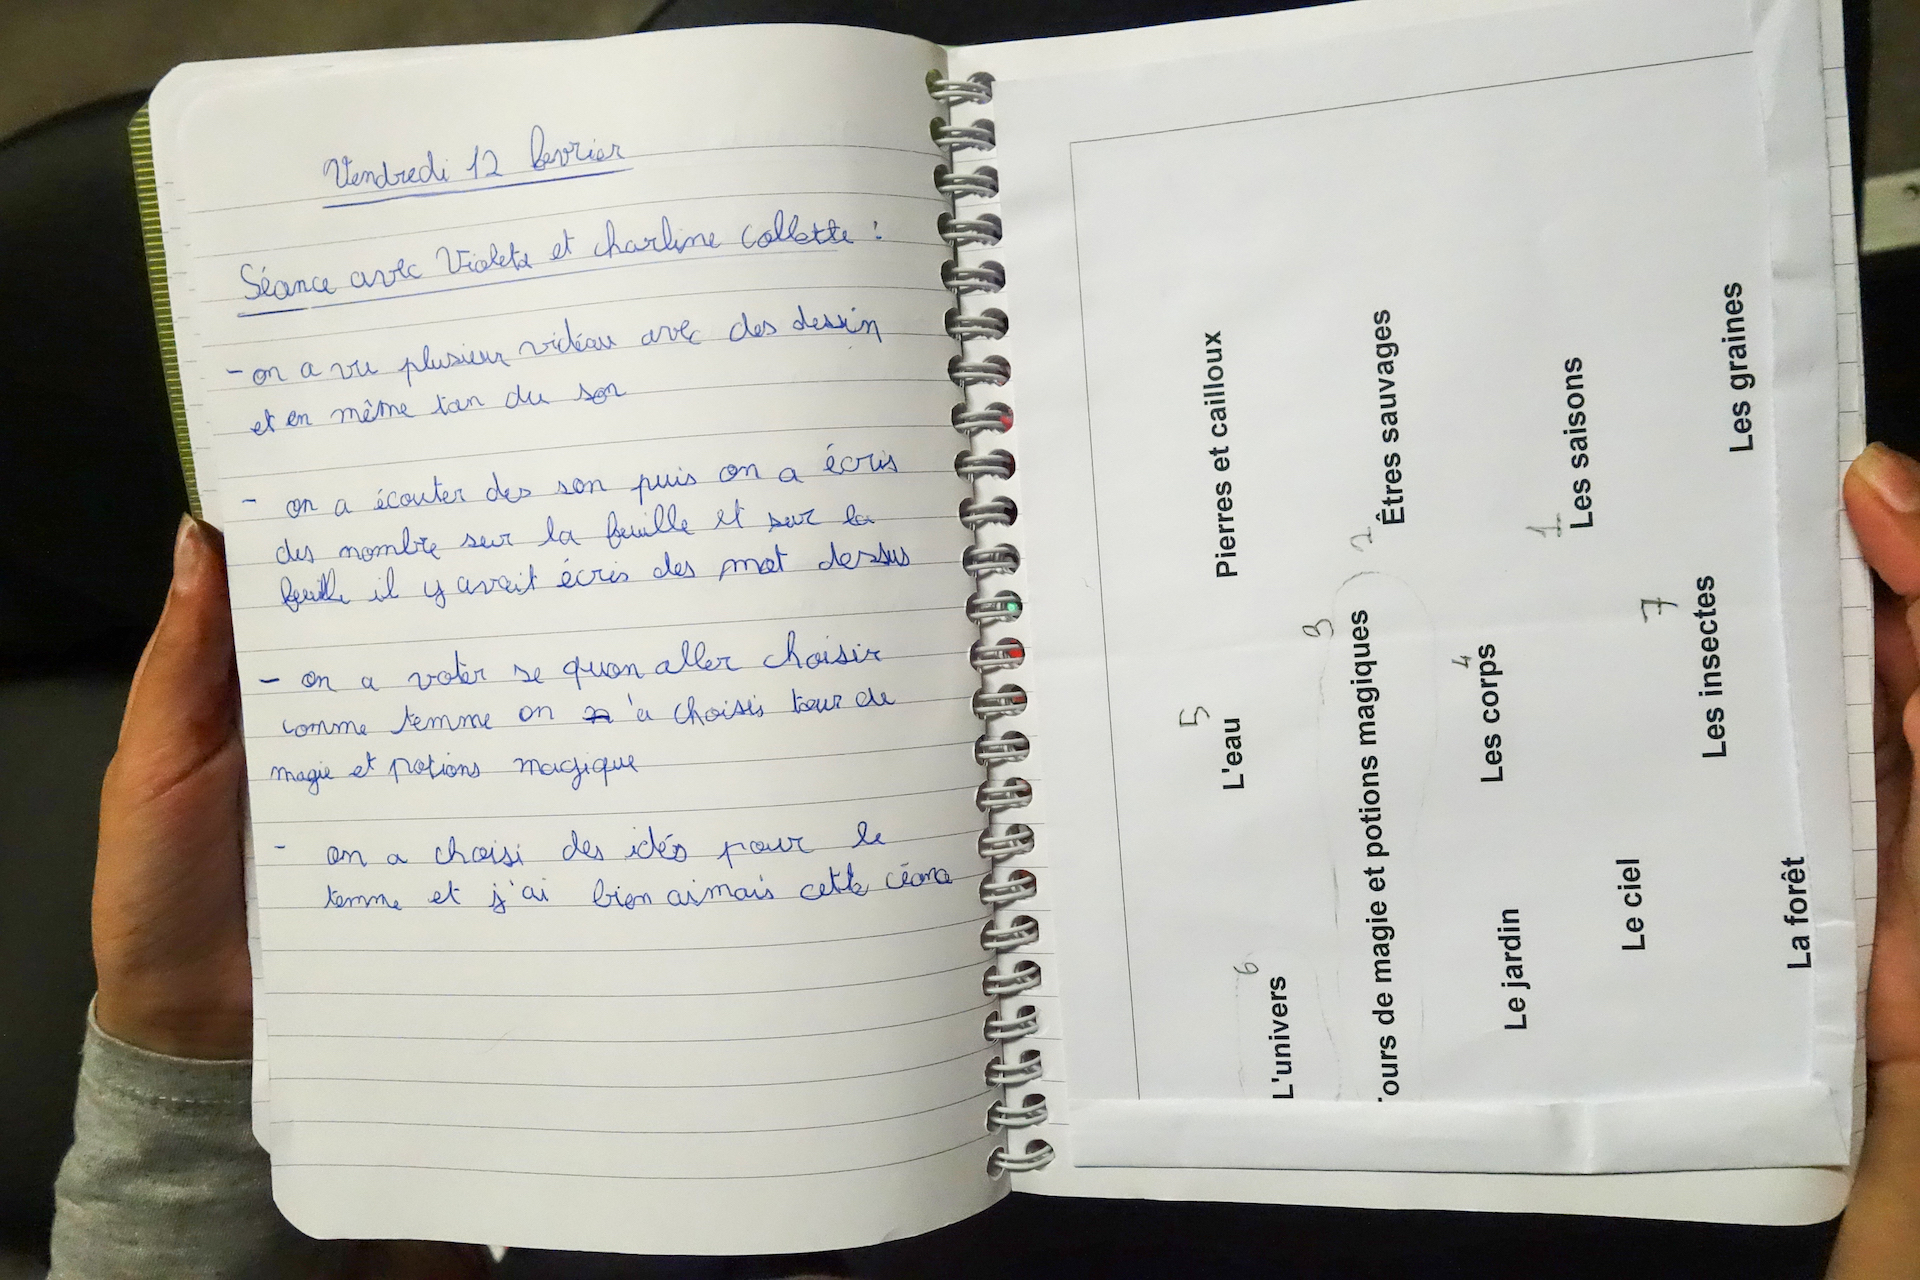 Vendredi 12 fevrier
Séance avec Violeta et charline collette :
- on a vu plusieur vidéau avec des dessin
et en même tan du son
- on a écouter des son puis on a écris
des nombre sur la feuille et sur la
feuille il y avait écris des mot dessus
- on a voter se quon aller choisir
comme temme on n 'a choisis tour de
magie et potions magique
- on a choisi des idés pour le
temme et j'ai bien aimais cette céona
Pierres et cailloux
2
Êtres sauvages
1
Les saisons
Les graines
5
L'eau
3
Tours de magie et potions magiques
4
Les corps
7
Les insectes
6
L'univers
Le jardin
Le ciel
La forêt